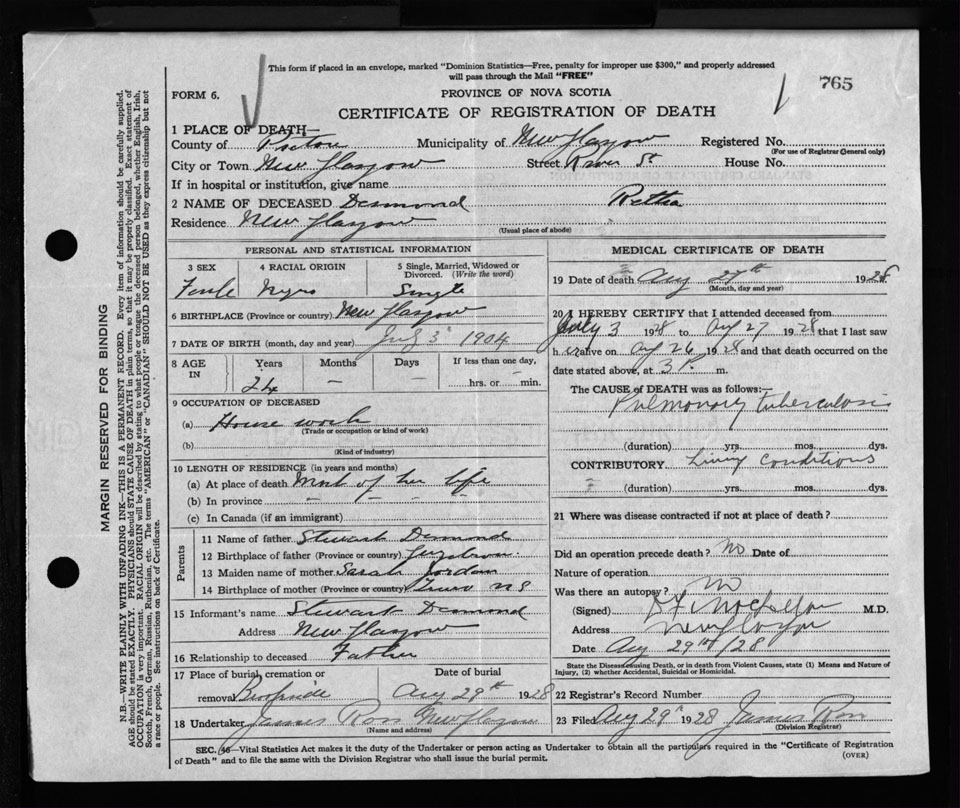 This form if placed in an envelope, marked "Dominion Statistics—Free, penalty for improper use $300," and properly addressed
will pass through the Mail "FREE"
765
FORM 6.
PROVINCE OF NOVA SCOTIA
CERTIFICATE OF REGISTRATION OF DEATH
1 PLACE OF DEATH—
County of Pictou Municipality of New Glasgow Registered No.
(For use of Registrar General only)
City or Town New Glasgow Street River St House No.
If in hospital or institution, give name
2 NAME OF DECEASED Desmond Retha
Residence New Glasgow
(Usual place of abode)
PERSONAL AND STATISTICAL INFORMATION
3 SEX 4 RACIAL ORIGIN 5 Single, Married, Widowed or Divorced. (Write the word)
Female Negro Single
6 BIRTHPLACE (Province or country) New Glasgow
7 DATE OF BIRTH (month, day and year) July 3 1904
8 AGE IN Years Months Days If less than one day,
24 — — hrs. or min.
9 OCCUPATION OF DECEASED
(a) House work
(Trade or occupation or kind of work)
(b)
(Kind of industry)
10 LENGTH OF RESIDENCE (in years and months)
(a) At place of death Most of her life
(b) In province — — — —
(c) In Canada (if an immigrant)
Parents
11 Name of father Stewart Desmond
12 Birthplace of father (Province or country)
13 Maiden name of mother Sarah Jordan
14 Birthplace of mother (Province or country) Truro NS
15 Informant's name Stewart Desmond
Address New Glasgow
16 Relationship to deceased Father
17 Place of burial, cremation or Date of burial
removal Brookside Aug 29th 1928
18 Undertaker James Ross New Glasgow
(Name and address)
MEDICAL CERTIFICATE OF DEATH
19 Date of death Aug 27th 1928
(Month, day and year)
20 I HEREBY CERTIFY that I attended deceased from
July 3 1928 to Aug 27 1928 that I last saw
her alive on Aug 26 1928 and that death occurred on the
date stated above, at 3 P. m.
The CAUSE OF DEATH was as follows:—
Pulmonary tuberculosis
(duration) yrs. mos. dys.
CONTRIBUTORY Living conditions
(duration) yrs. mos. dys.
21 Where was disease contracted if not at place of death?
Did an operation precede death? No Date of
Nature of operation
Was there an autopsy? No
(Signed) M.D.
Address New Glasgow
Date Aug 29th/28
State the Disease causing Death, or in death from Violent Causes, state (1) Means and Nature of
Injury, (2) whether Accidental, Suicidal or Homicidal.
22 Registrar's Record Number
23 Filed Aug 29th 1928 James Ross
(Division Registrar)
SEC. 36—Vital Statistics Act makes it the duty of the Undertaker or person acting as Undertaker to obtain all the particulars required in the "Certificate of Registration
of Death" and to file the same with the Division Registrar who shall issue the burial permit.
(OVER)
MARGIN RESERVED FOR BINDING
N.B.—WRITE PLAINLY WITH UNFADING INK—THIS IS A PERMANENT RECORD. Every item of information should be carefully supplied.
AGE should be stated EXACTLY. PHYSICIANS should STATE CAUSE OF DEATH in plain terms, so that it may be properly classified. Exact statement of
OCCUPATION is very important. RACIAL ORIGIN will be described by stating to what people or tongue the deceased person belonged, whether English, Irish,
Scotch, French, German, Russian, Ruthenian, etc. The terms "AMERICAN" or "CANADIAN" SHOULD NOT BE USED as they express citizenship but not
a race or people. See instructions on back of Certificate.